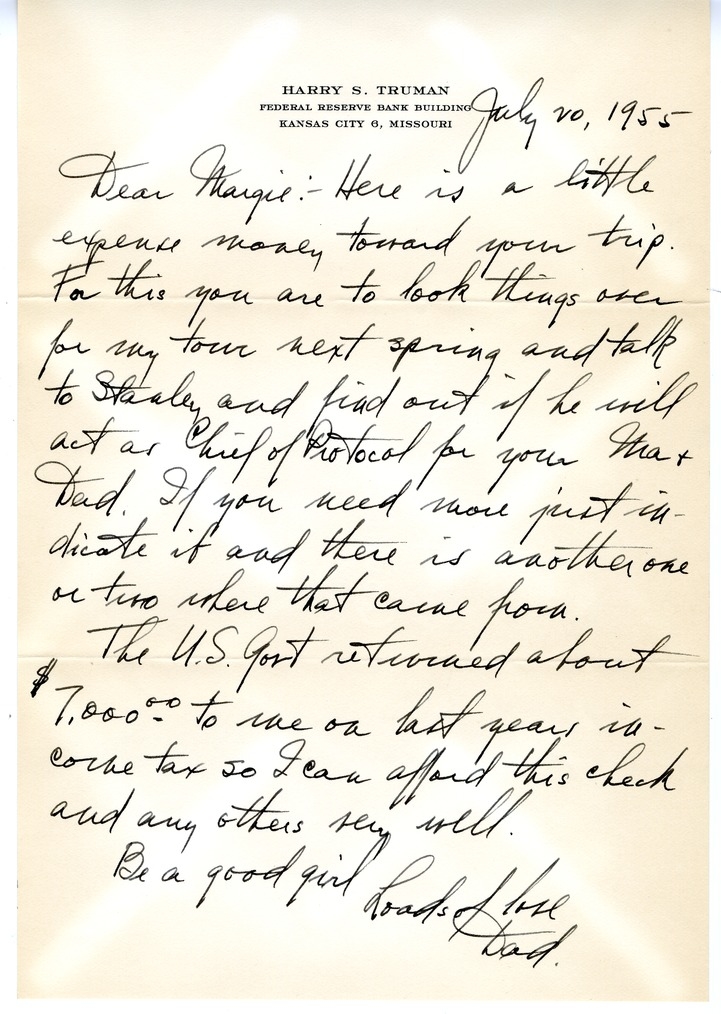 HARRY S. TRUMAN
FEDERAL RESERVE BANK BUILDING
KANSAS CITY 6, MISSOURI
July 20, 1955
Dear Margie:- Here is a little
expense money toward your trip.
For this you are to look things over
for my tour next spring and talk
to Stanley and find out if he will
act as Chief of Protocol for your Ma +
Dad. If you need more just in-
dicate it and there is another one
or two where that came from.
The U.S. Govt returned about
$7,000.00 to me on last years in-
come tax so I can afford this check
and any others very well.
Be a good girl
Loads of love
Dad.